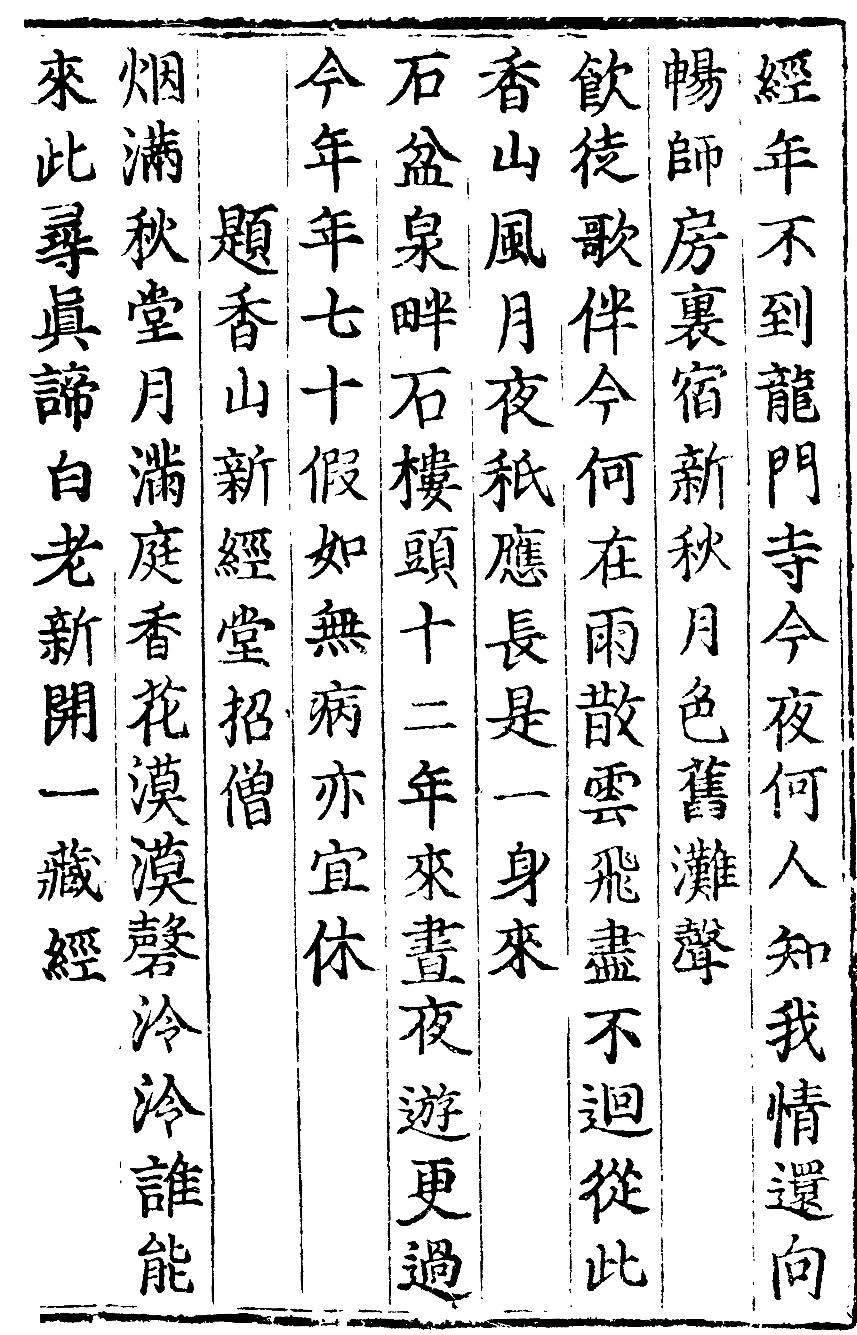 經年不到龍門寺今夜何人知我情還向
暢師房裏宿新秋月色舊灘聲
飲徒歌伴今何在雨散雲飛盡不迴從此
香山風月夜秖應長是一身來
石盆泉畔石樓頭十二年來晝夜遊更過
今年年七十假如無病亦宜休
題香山新經堂招僧
烟滿秋堂月滿庭香花漠漠磬泠泠誰能
來此尋眞諦白老新開一藏經